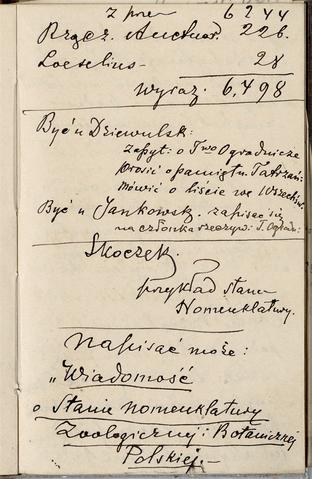 z prze 6244
Rzącz. Auctuar. 226.
Loeselius 28
Wyraz. 6,498
Być u Dziewulsk:
zapyt: o Two Ogrodnicze
prosić o pamiętn. Tatrzań:
mówić o liście we Wszechśw.
Być u Jankowsk. zapisać się
na członka rzeczyw: T. Ogrodn:
Skoczek.
przykład stanu
Nomenklatury.
Napisać może:
„Wiadomość
o Stanie nomenklatury
Zoologicznej i Botanicznej
Polskiej.–